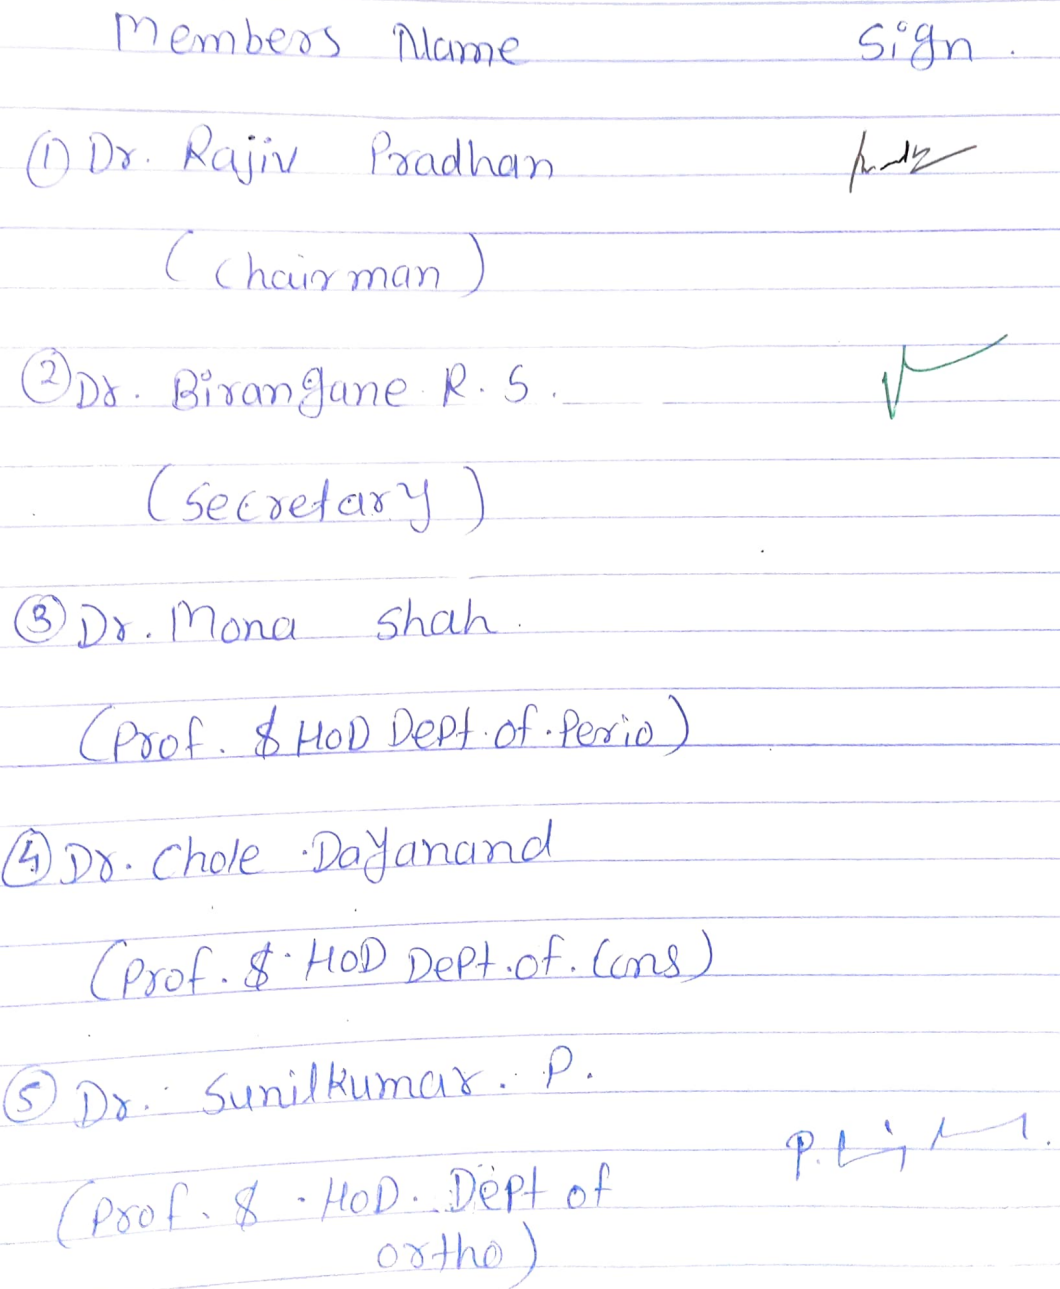 Members Name Sign.
① Dr. Rajiv Pradhan
(Chairman)
② Dr. Birangane R. S.
(Secretary)
③ Dr. Mona Shah.
(Prof. & HOD Dept. of. Perio)
④ Dr. Chole Dayanand
(Prof. & HOD Dept. of. Cons)
⑤ Dr. Sunilkumar. P.
(Prof. & HOD. Dept of
ortho)